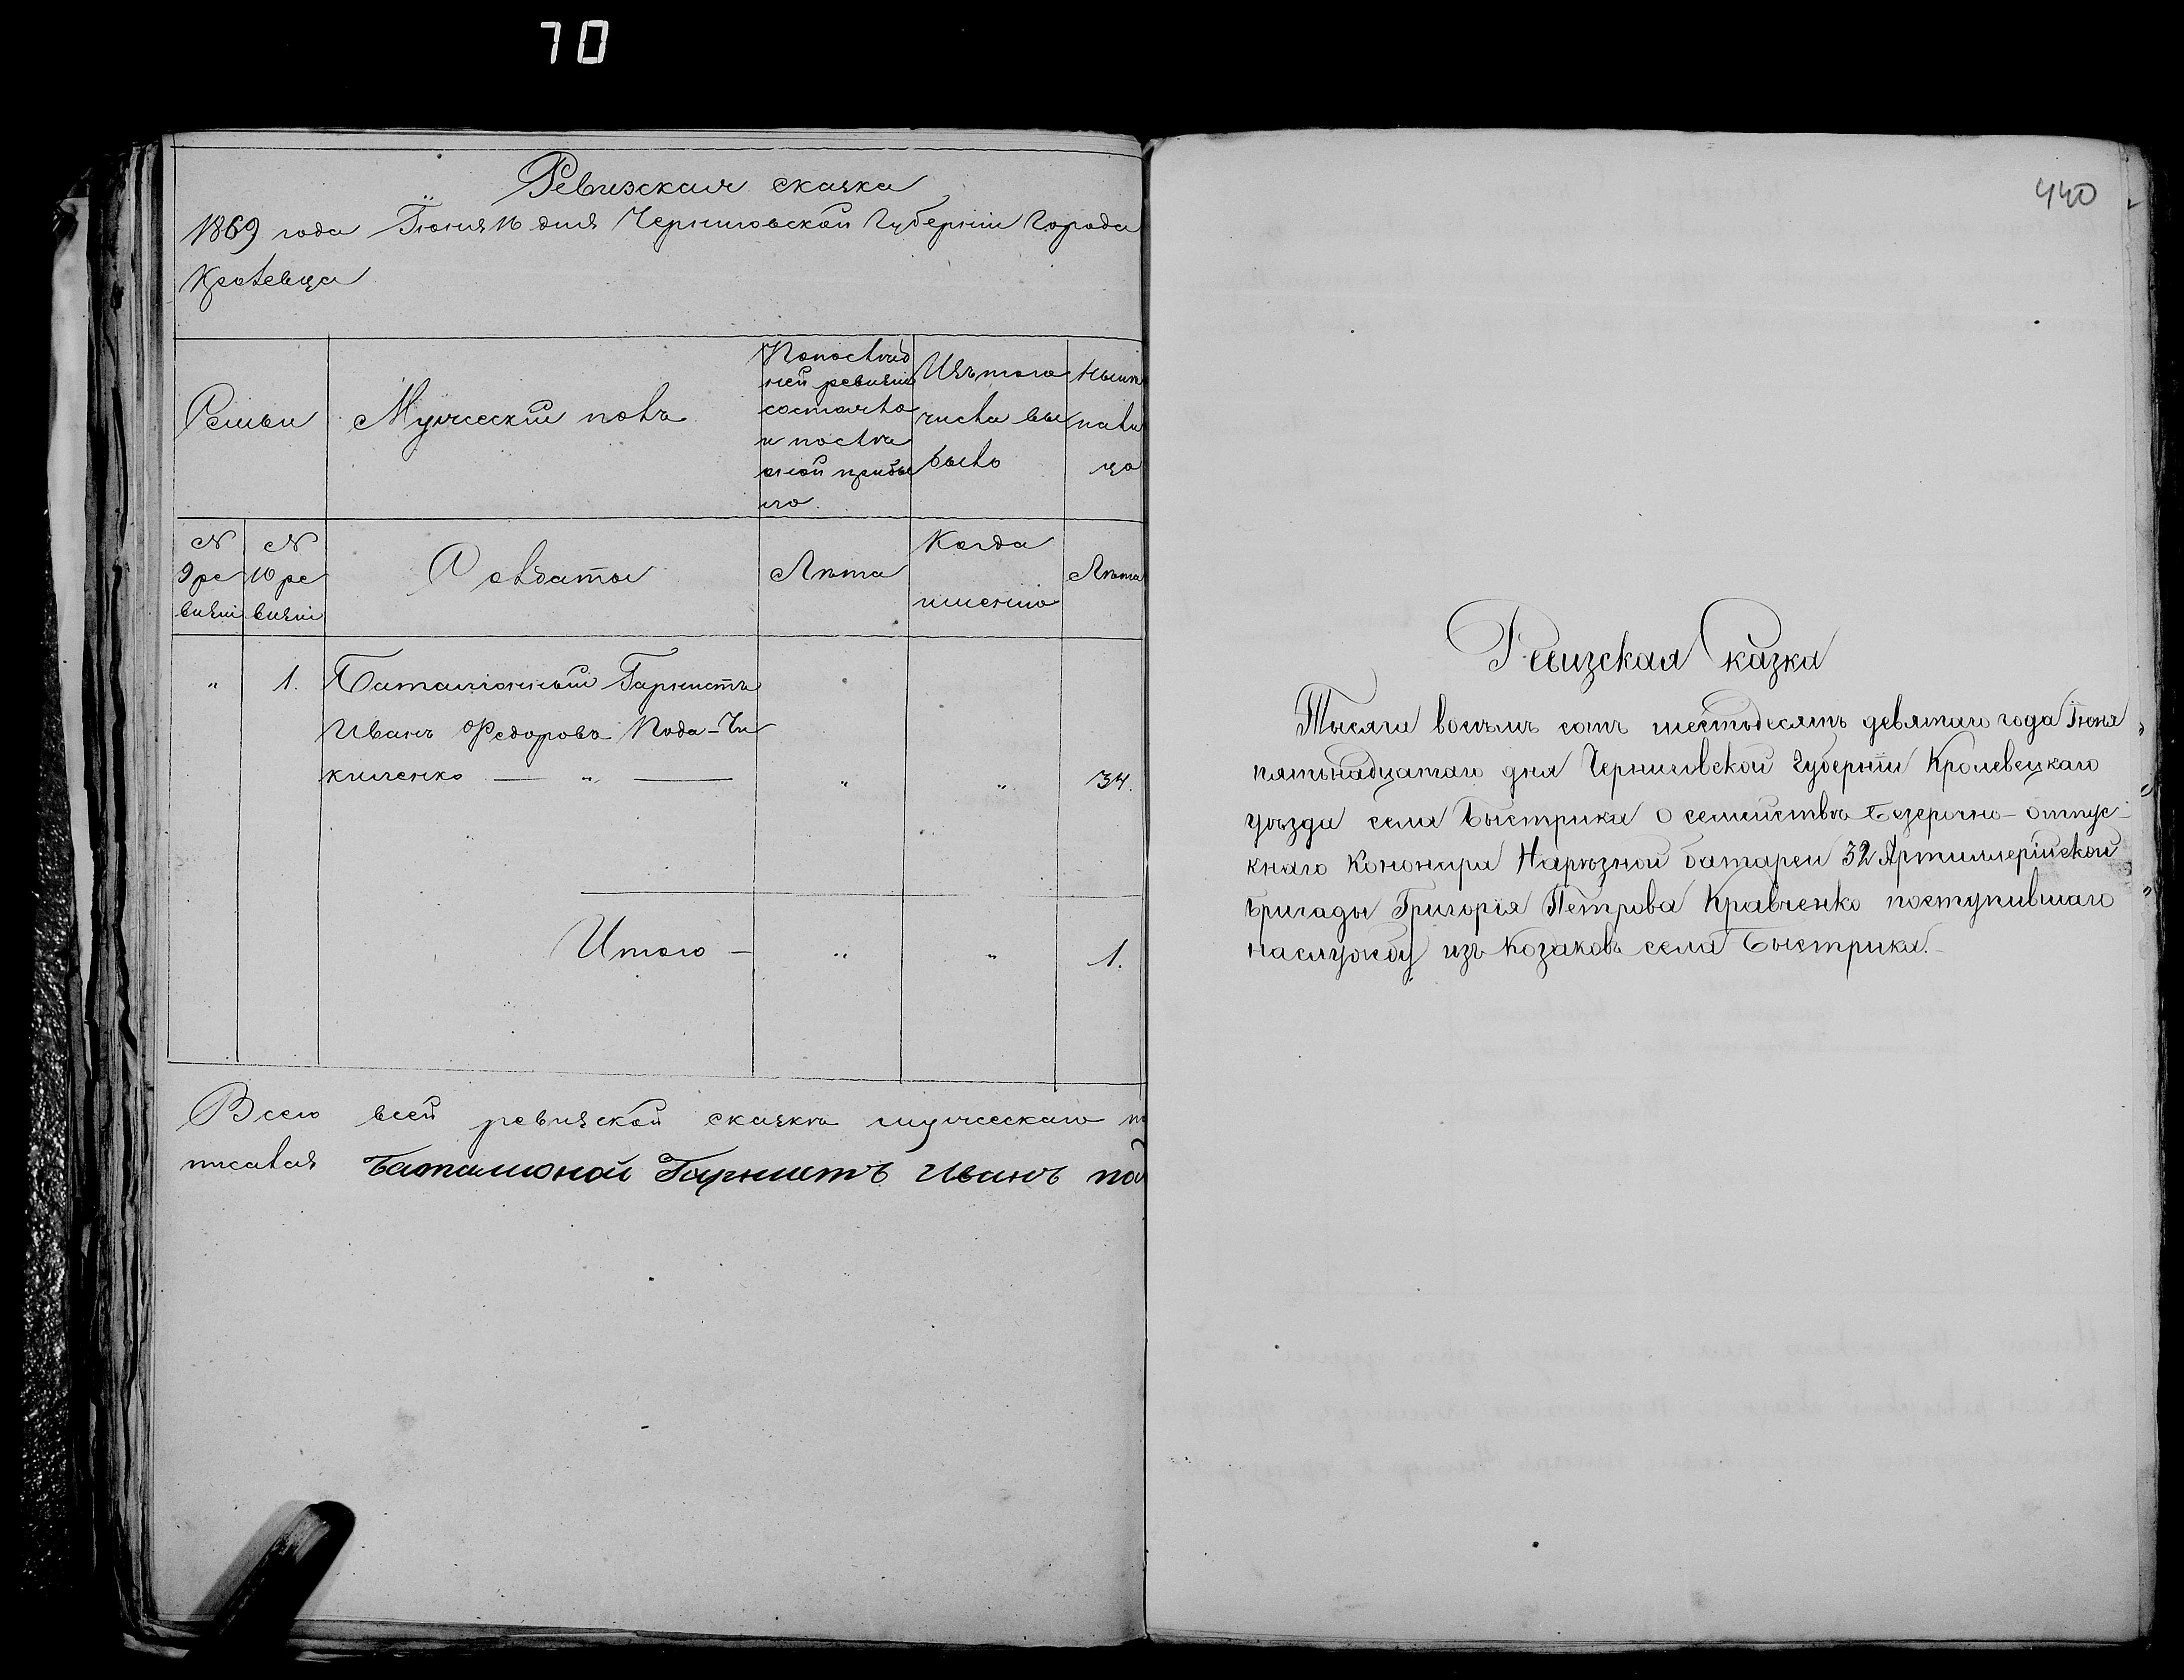 70
Ревизская сказка
1869 года Іюня 16 дня Черниговской Губерніи Города
Кролевца
Семьи
Мужескій полъ
Попослѣд
ней ревизіи
состояло
и послѣ
оной прибы
ло.
Изъ того
числа вы
было
Нынѣ
нали
цо
№
9 ре
визіи
№
10 ре
визіи
Солдаты
Лѣта
Когда
именно
Лѣта
„ 1. Баталіонный Горнистъ
Иванъ Федоровъ
киленко — „ — „ „ 34.
Итого — „ „ 1.
Всего всей ревизской сказкѣ мужескаго п
писался Баталионой Горнистъ Иванъ под
440
Ревизская Сказка
Тысяча восемь сотъ шестьдесятъ девятаго года Іюня
пятьнадцатаго дня Черниговской Губерніи Кролевецкаго
уѣзда села Быстрика о семействѣ Безсрочно-отпус-
кнаго Канонира Нарѣзной батареи 32 Артиллерійской
бригады Григорія Петрова Кравченко поступившаго
наслужбу изъ Козаковъ села Быстрика.-